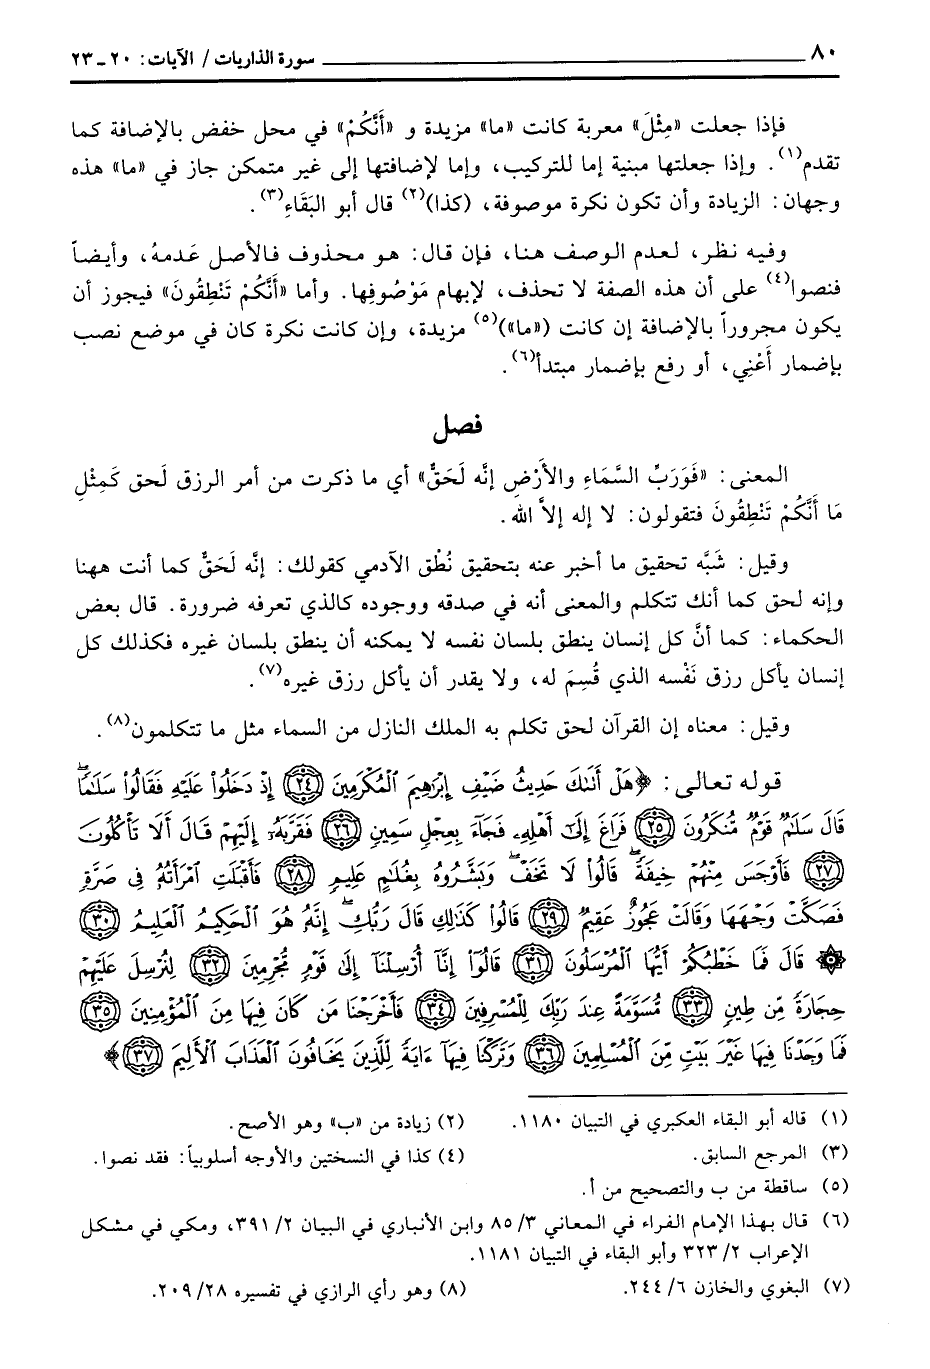 ٨٠ سورة الذاريات / الآيات: ٢٠ ـ ٢٣
فإذا جعلت «مِثْلَ» معربة كانت «ما» مزيدة و «أَنَّكُمْ» في محل خفض بالإضافة كما
تقدم(١). وإذا جعلتها مبنية إما للتركيب، وإما لإضافتها إلى غير متمكن جاز في «ما» هذه
وجهان: الزيادة وأن تكون نكرة موصوفة، (كذا)(٢) قال أبو البَقَاءِ(٣).
وفيه نظر، لعدم الوصف هنا، فإن قال: هو محذوف فالأصل عَدمهُ، وأيضاً
فنصوا(٤) على أن هذه الصفة لا تحذف، لإبهام مَوْصُوفِها. وأما «أَنَّكُمْ تَنْطِقُونَ» فيجوز أن
يكون مجروراً بالإضافة إن كانت («ما»)(٥) مزيدة، وإن كانت نكرة كان في موضع نصب
بإضمار أَعْنِي، أو رفع بإضمار مبتدأ(٦).
فصل
المعنى: «فَوَرَبِّ السَّمَاءِ والأَرْضِ إنَّه لَحَقٌّ» أي ما ذكرت من أمر الرزق لَحق كَمِثْلِ
مَا أَنَّكُمْ تَنْطِقُونَ فتقولون: لا إله إلاَّ الله.
وقيل: شَبَّه تحقيق ما أخبر عنه بتحقيق نُطْق الآدمي كقولك: إنَّه لَحَقٌّ كما أنت ههنا
وإنه لحق كما أنك تتكلم والمعنى أنه في صدقه ووجوده كالذي تعرفه ضرورة. قال بعض
الحكماء: كما أنَّ كل إنسان ينطق بلسان نفسه لا يمكنه أن ينطق بلسان غيره فكذلك كل
إنسان يأكل رزق نَفْسه الذي قُسِمَ له، ولا يقدر أن يأكل رزق غيره(٧).
وقيل: معناه إن القرآن لحق تكلم به الملك النازل من السماء مثل ما تتكلمون(٨).
قوله تعالى: ﴿هَلْ أَتَىٰكَ حَدِيثُ ضَيْفِ إِبْرَٰهِيمَ ٱلْمُكْرَمِينَ ٢٤ إِذْ دَخَلُوا۟ عَلَيْهِ فَقَالُوا۟ سَلَٰمًا ۖ
قَالَ سَلَٰمٌ قَوْمٌ مُّنكَرُونَ ٢٥ فَرَاغَ إِلَىٰٓ أَهْلِهِۦ فَجَآءَ بِعِجْلٍ سَمِينٍ ٢٦ فَقَرَّبَهُۥٓ إِلَيْهِمْ قَالَ أَلَا تَأْكُلُونَ
٢٧ فَأَوْجَسَ مِنْهُمْ خِيفَةً ۖ قَالُوا۟ لَا تَخَفْ ۖ وَبَشَّرُوهُ بِغُلَٰمٍ عَلِيمٍ ٢٨ فَأَقْبَلَتِ ٱمْرَأَتُهُۥ فِى صَرَّةٍ
فَصَكَّتْ وَجْهَهَا وَقَالَتْ عَجُوزٌ عَقِيمٌ ٢٩ قَالُوا۟ كَذَٰلِكِ قَالَ رَبُّكِ ۖ إِنَّهُۥ هُوَ ٱلْحَكِيمُ ٱلْعَلِيمُ ٣٠
۞ قَالَ فَمَا خَطْبُكُمْ أَيُّهَا ٱلْمُرْسَلُونَ ٣١ قَالُوٓا۟ إِنَّآ أُرْسِلْنَآ إِلَىٰ قَوْمٍ مُّجْرِمِينَ ٣٢ لِنُرْسِلَ عَلَيْهِمْ
حِجَارَةً مِّن طِينٍ ٣٣ مُّسَوَّمَةً عِندَ رَبِّكَ لِلْمُسْرِفِينَ ٣٤ فَأَخْرَجْنَا مَن كَانَ فِيهَا مِنَ ٱلْمُؤْمِنِينَ ٣٥
فَمَا وَجَدْنَا فِيهَا غَيْرَ بَيْتٍ مِّنَ ٱلْمُسْلِمِينَ ٣٦ وَتَرَكْنَا فِيهَآ ءَايَةً لِّلَّذِينَ يَخَافُونَ ٱلْعَذَابَ ٱلْأَلِيمَ ٣٧﴾
(١) قاله أبو البقاء العكبري في التبيان ١١٨٠. (٢) زيادة من «ب» وهو الأصح.
(٣) المرجع السابق. (٤) كذا في النسختين والأوجه أسلوبياً: فقد نصوا.
(٥) ساقطة من ب والتصحيح من أ.
(٦) قال بهذا الإمام الفراء في المعاني ٣/ ٨٥ وابن الأنباري في البيان ٢/ ٣٩١، ومكي في مشكل
الإعراب ٢/ ٣٢٣ وأبو البقاء في التبيان ١١٨١.
(٧) البغوي والخازن ٦/ ٢٤٤. (٨) وهو رأي الرازي في تفسيره ٢٨/ ٢٠٩.